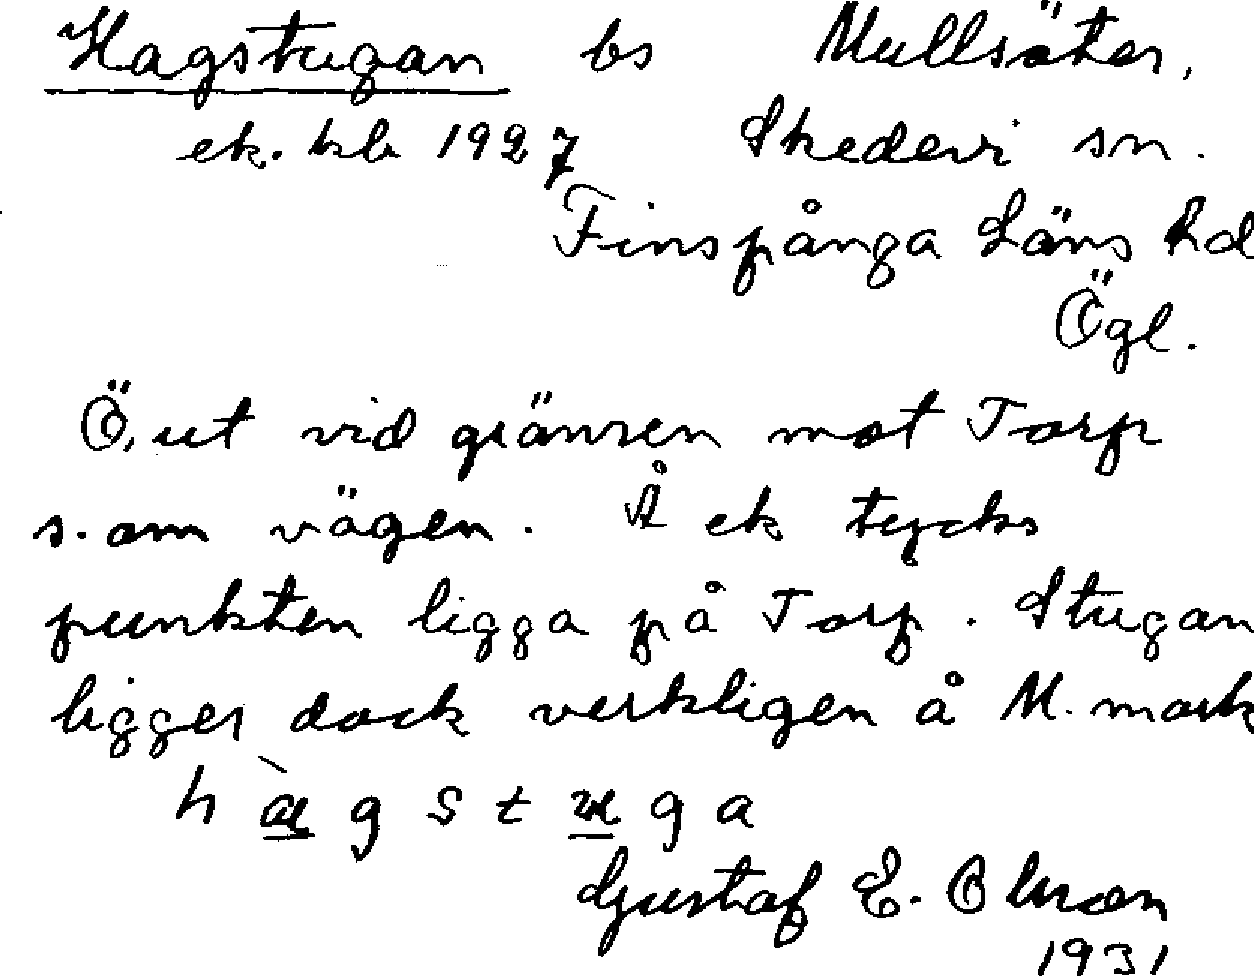 Hagstugan bs Mullsäter,
ek. kb 1927 Skedevi sn.
Finspånga Läns hd
Ögl.
Ö, ut vid gränsen mot Torp
s. om vägen. Å ek tycks
punkten ligga på Torp. Stugan
ligger dock verkligen å M. mark
hàgstuga
Gustaf E. Olsson
1931